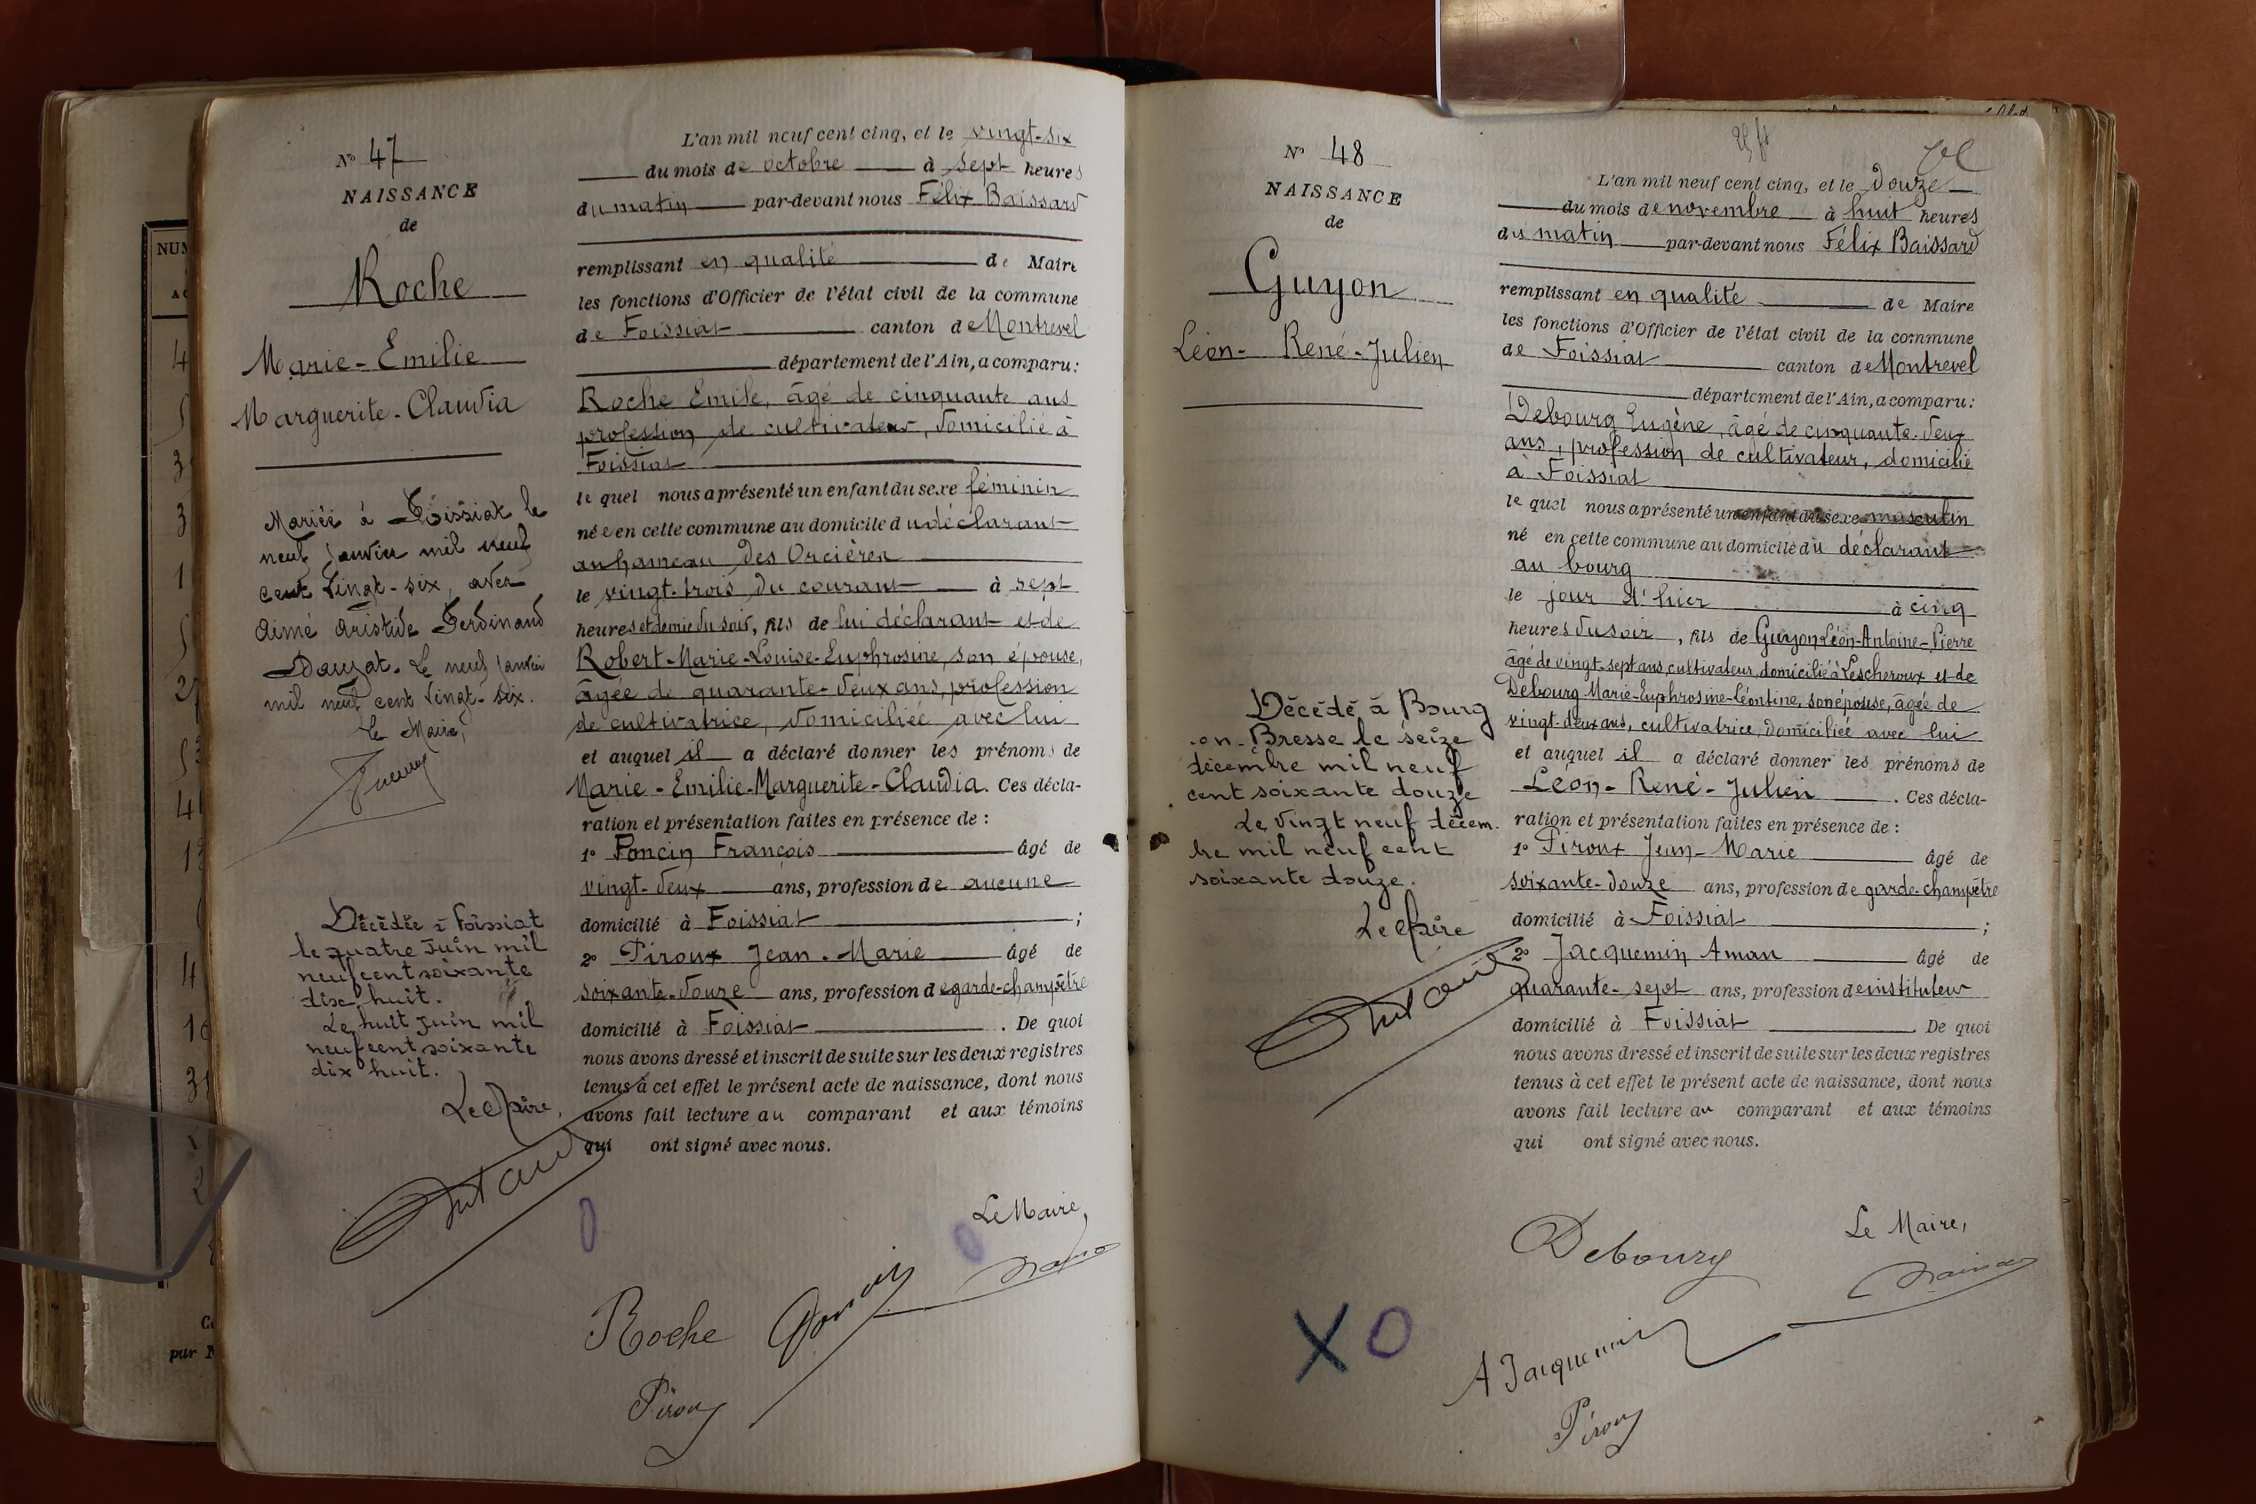 NUM
N° 47
NAISSANCE
de
Roche
Marie-Emilie
Marguerite-Claudia
Mariée à Foissiat le
neuf janvier mil neuf
cent vingt-six, avec
Aimé Aristide Ferdinand
Dauzat. Le neuf janvier
mil neuf cent vingt-six.
Le Maire,
Décédée à Foissiat
le quatre Juin mil
neuf cent soixante
dix huit.
Le huit Juin mil
neuf cent soixante
dix huit.
Le Maire,
L'an mil neuf cent cinq, et le vingt-six
du mois de octobre à sept heures
du matin par-devant nous Félix Baissard
remplissant en qualité de Maire
les fonctions d'Officier de l'état civil de la commune
de Foissiat canton de Montrevel
département de l'Ain, a comparu:
Roche Emile, âgé de cinquante ans
profession de cultivateur, domicilié à
Foissiat
le quel nous a présenté un enfant du sexe féminin
née en cette commune au domicile du déclarant
au hameau des Orcières
le vingt-trois du courant à sept
heures et demie du soir, fils de lui déclarant et de
Robert-Marie-Louise-Euphrosine, son épouse,
âgée de quarante-deux ans, profession
de cultivatrice, domiciliée avec lui
et auquel il a déclaré donner les prénoms de
Marie-Emilie-Marguerite-Claudia. Ces décla-
ration et présentation faites en présence de :
1° Poncin François âgé de
vingt-deux ans, profession de aucune
domicilié à Foissiat ;
2° Piroux Jean-Marie âgé de
soixante-douze ans, profession de garde-champêtre
domicilié à Foissiat . De quoi
nous avons dressé et inscrit de suite sur les deux registres
tenus à cet effet le présent acte de naissance, dont nous
avons fait lecture au comparant et aux témoins
qui ont signé avec nous.
Le Maire,
Roche
Piroux
N° 48
NAISSANCE
de
Guyon
Léon-René-Julien
Décédé à Bourg
en-Bresse le seize
décembre mil neuf
cent soixante douze
Le vingt neuf décem
bre mil neuf cent
soixante douze.
Le Maire
L'an mil neuf cent cinq, et le douze
du mois de novembre à huit heures
du matin par-devant nous Félix Baissard
remplissant en qualité de Maire
les fonctions d'Officier de l'état civil de la commune
de Foissiat canton de Montrevel
département de l'Ain, a comparu:
Debourg Eugène, âgé de cinquante-deux
ans, profession de cultivateur, domicilié
à Foissiat
le quel nous a présenté un enfant du sexe masculin
né en cette commune au domicile du déclarant
au bourg
le jour d'hier à cinq
heures du soir, fils de Guyon Léon-Antoine-Pierre
âgé de vingt-sept ans, cultivateur, domicilié à Lescheroux et de
Debourg Marie-Euphrosine-Léontine, son épouse, âgée de
vingt-deux ans, cultivatrice, domiciliée avec lui
et auquel il a déclaré donner les prénoms de
Léon-René-Julien . Ces décla-
ration et présentation faites en présence de :
1° Piroux Jean-Marie âgé de
soixante-douze ans, profession de garde-champêtre
domicilié à Foissiat ;
2° Jacquemin Aman âgé de
quarante-sept ans, profession de instituteur
domicilié à Foissiat . De quoi
nous avons dressé et inscrit de suite sur les deux registres
tenus à cet effet le présent acte de naissance, dont nous
avons fait lecture au comparant et aux témoins
qui ont signé avec nous.
Debourg
Le Maire,
A Jacquemin
Piroux